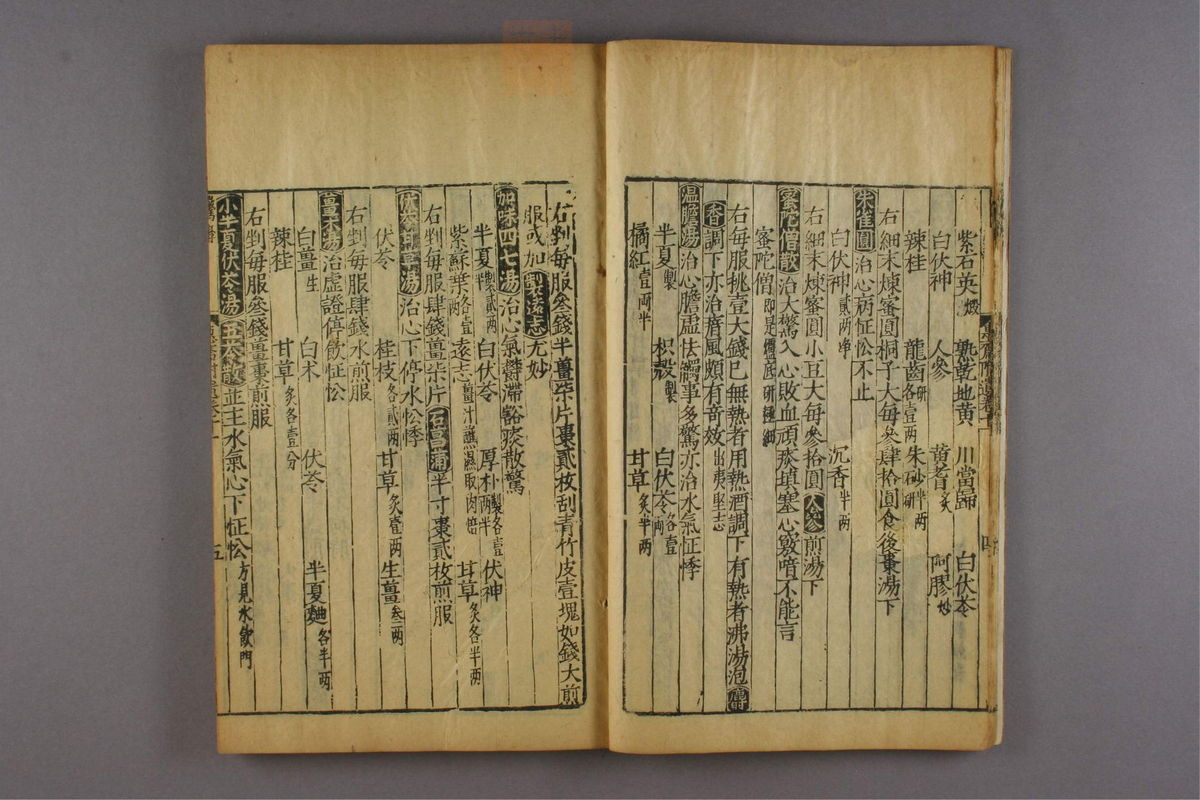 紫石英煅 熟乾地黃 川當歸 白伏苓
白伏神 人參 黃耆炙 阿膠炒
辣桂 龍齒研各壹两 朱砂研半两
右細末煉蜜圓桐子大每叄肆拾圓食後棗湯下
朱雀圓治心病怔忪不止
白伏神貳两净 沉香半两
右細末煉蜜圓小豆大每叄拾圓人參煎湯下
蜜陀僧散治大驚入心敗血頑痰填塞心竅喑不能言
蜜陀僧即是爐底研極細
右每服挑壹大錢匕無熱者用熱酒調下有熱者沸湯泡麝
香調下亦治瘖風頗有音效出夷堅志
温膽湯治心膽虛怯觸事多驚亦治水氣怔悸
半夏製 枳殼製 白伏苓各壹两
橘紅壹两半 甘草炙半两
右剉每服叄錢半薑柒片棗貳枚刮青竹皮壹塊如錢大煎
服或加製遠志尤妙
加味四七湯治心氣鬱滯豁痰散驚
半夏製貳两半 白伏苓 厚朴製各壹两半 伏神
紫蘇葉各壹两 遠志薑汁蘸濕取肉焙 甘草炙各半两
右剉每服肆錢薑柒片石菖蒲半寸棗貳枚煎服
伏苓甘草湯治心下停水忪悸
伏苓 桂枝各貳两 甘草炙壹两 生薑叁两
右剉每服肆錢水煎服
薑朮湯治虛證停飲怔忪
白薑生 白朮 伏苓 半夏麯各半两
辣桂 甘草炙各壹分
右剉每服叄錢薑棗煎服
小半夏伏苓湯 五苓散並主水氣心下怔忪方見水飲門